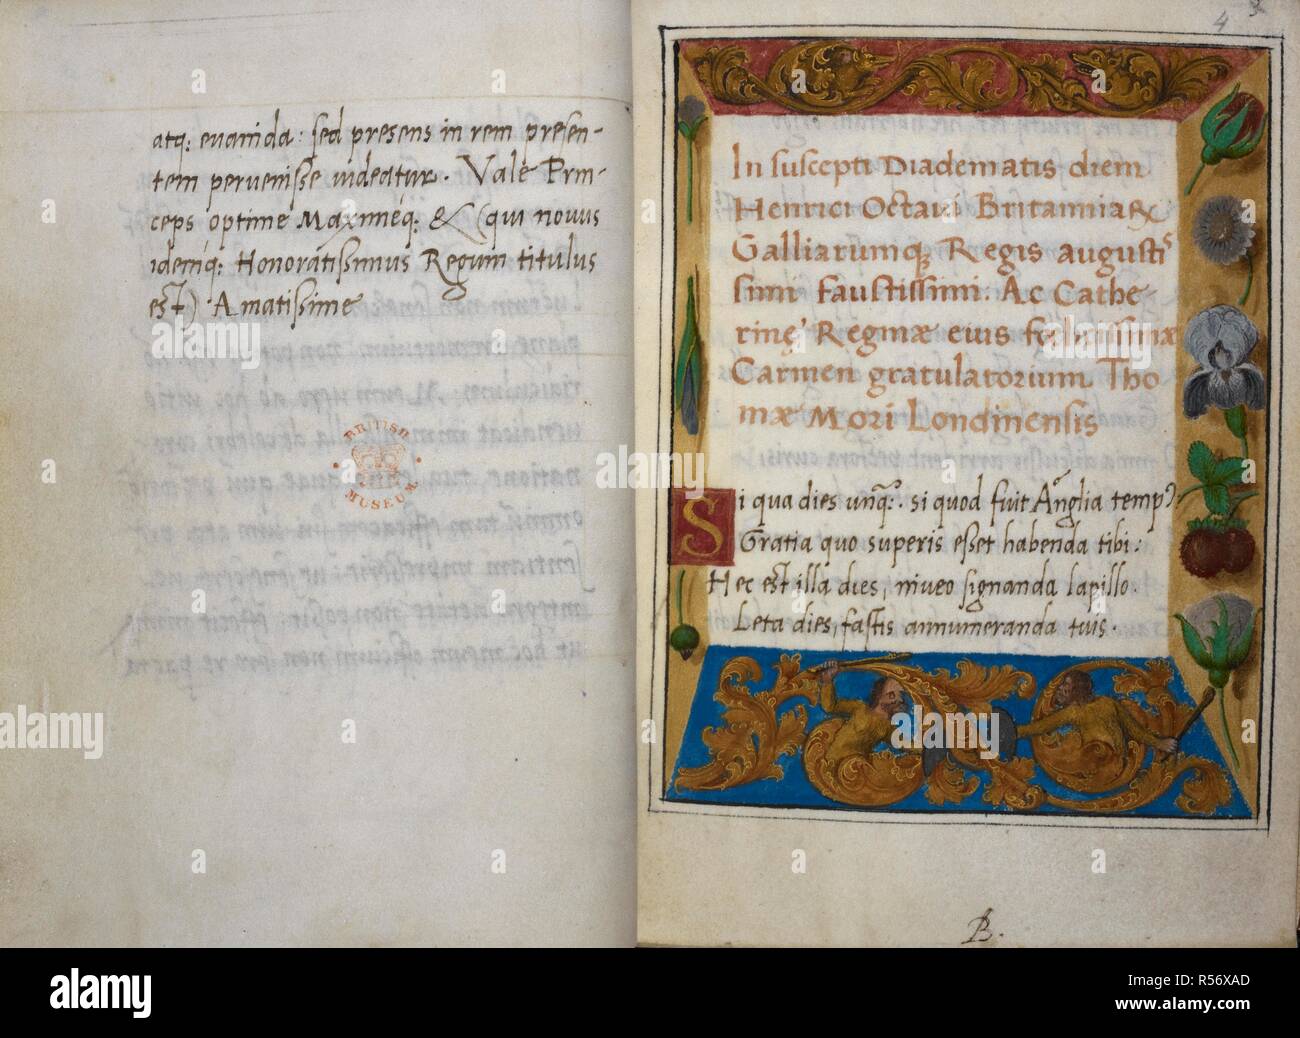 atq: evanida: sed presens in rem presen-
tem pervenisse videatur. Vale Prin-
ceps optime Maximeq: & (qui novus
idemq: Honoratissimus Regum titulus
est) Amatissime
BRITISH
MUSEUM
4
In suscepti Diadematis diem
Henrici Octavi Britanniarx
Galliarumq Regis augustis
simi faustissimi. Ac Cathe-
rinę Reginæ eius fœlicissimæ
Carmen gratulatorium Tho
mæ Mori Londinensis
Si qua dies unq: si quod fuit Anglia temp9
Gratia quo superis esset habenda tibi:
Hec est illa dies, niveo signanda lapillo.
Leta dies, fastis annumeranda tuis.
B.
alamy stock photo
alamy
Image ID: R56XAD
www.alamy.com